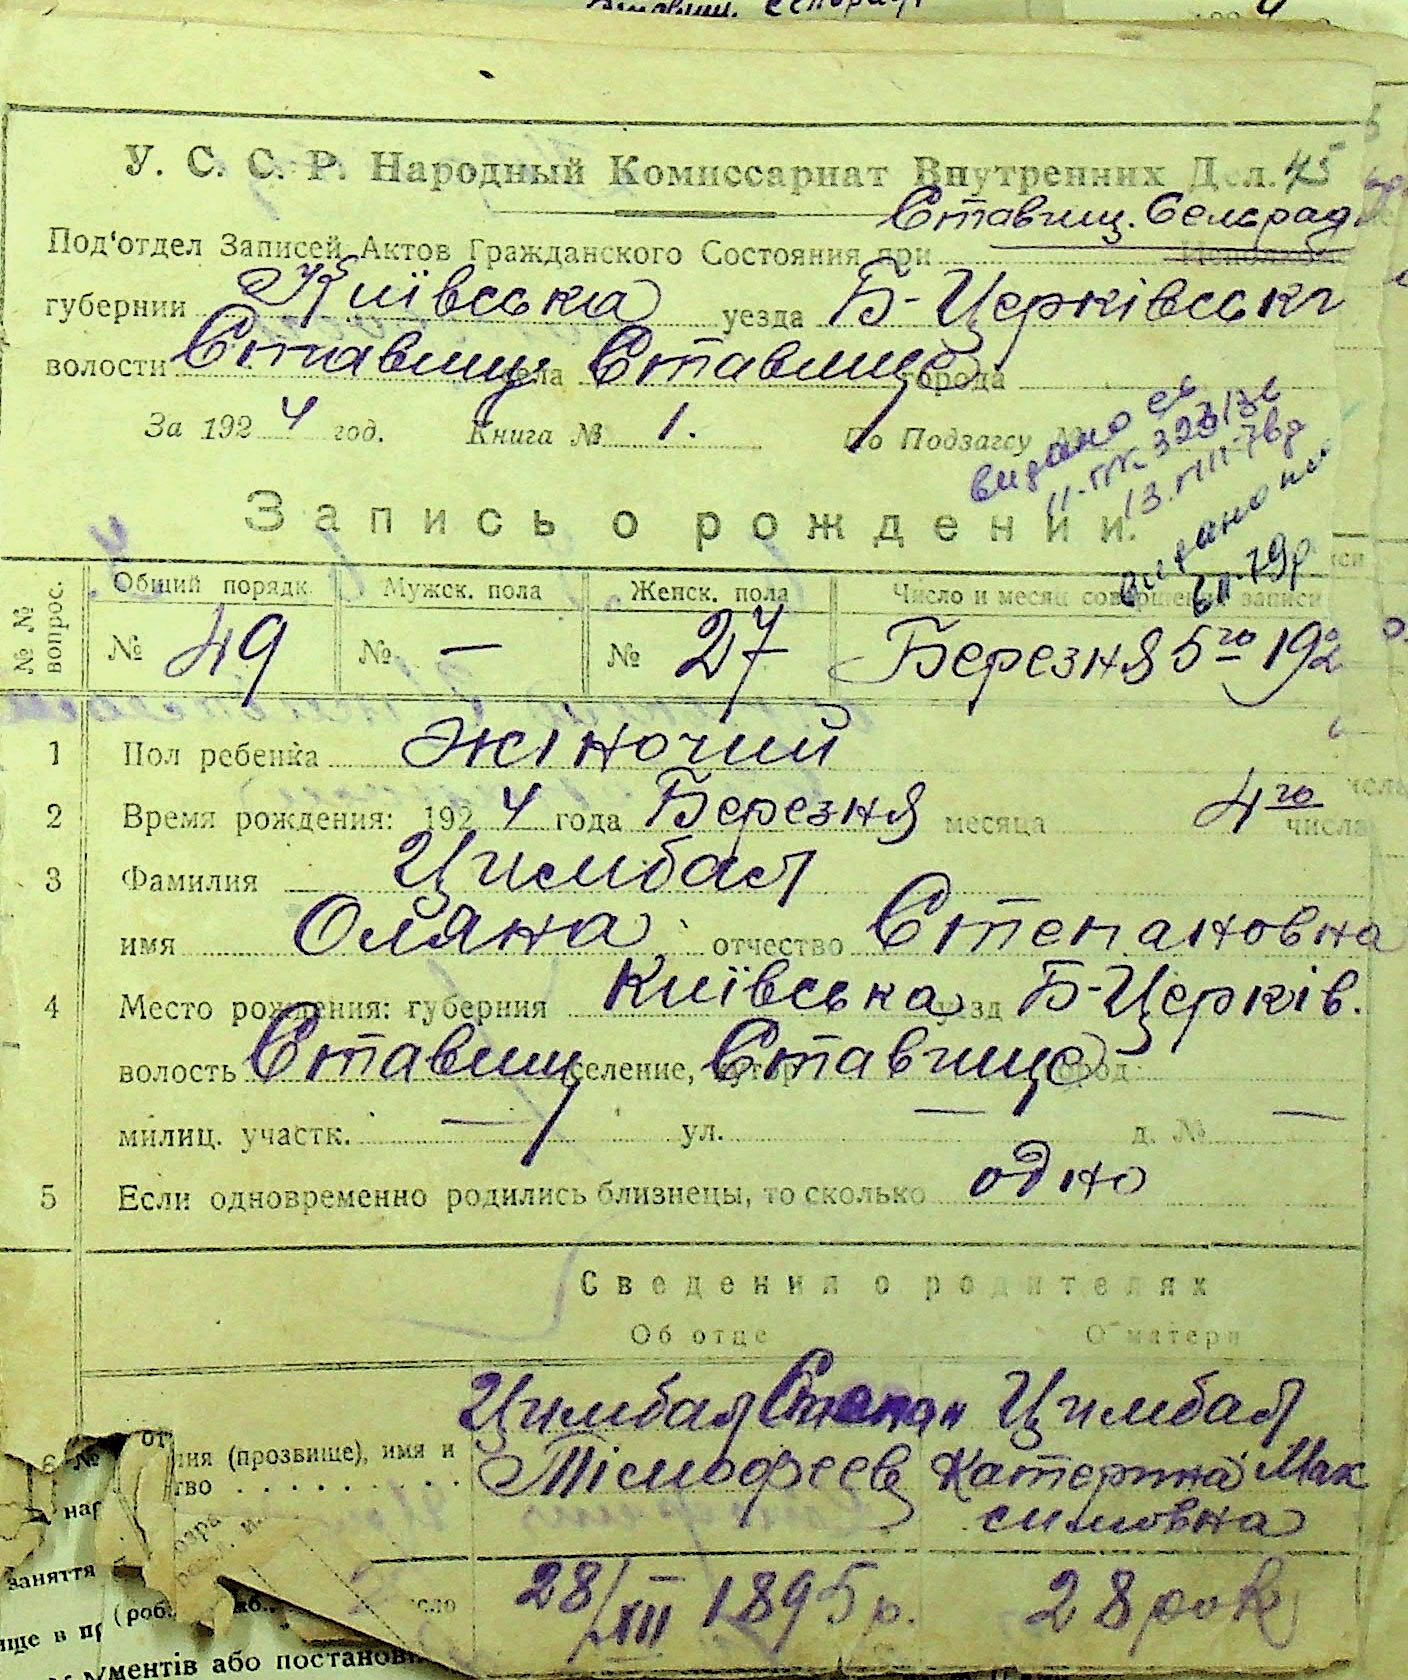 У. С. С. Р. Народный Комиссариат Внутренних Дел. 45
Ставищ. Сельрад
Под'отдел Записей Актов Гражданского Состояния при Исполкоме
губернии Київська уезда Б-Церківськ
волости Ставищ села Ставище города
За 1924 год. Книга № 1. По Подзагсу №
видано
13.VIII-
видано
Запись о рождении.
№№ вопрос. Общий порядк. Мужск. пола Женск. пола Число и месяц совершения записи
№ 49 № — № 27 Березня 5го 192
1 Пол ребенка жіночий
2 Время рождения: 1924 года Березня месяца 4го числа
3 Фамилия Цимбал
имя Оляна отчество Степановна
4 Место рождения: губерния Київська уезд Б-Церків.
волость Ставищ селение, хутор Ставище город
милиц. участк. — ул. — д. № —
5 Если одновременно родились близнецы, то сколько одно
Сведения о родителях
Об отце О матери
Цимбал Степан Цимбал
6 (прозвище), имя и Тімофеев Катерина Мак
тво симовна
заняття
28/XII 1895 р. 28 рок
(роб.
ище в
ументів або постанов